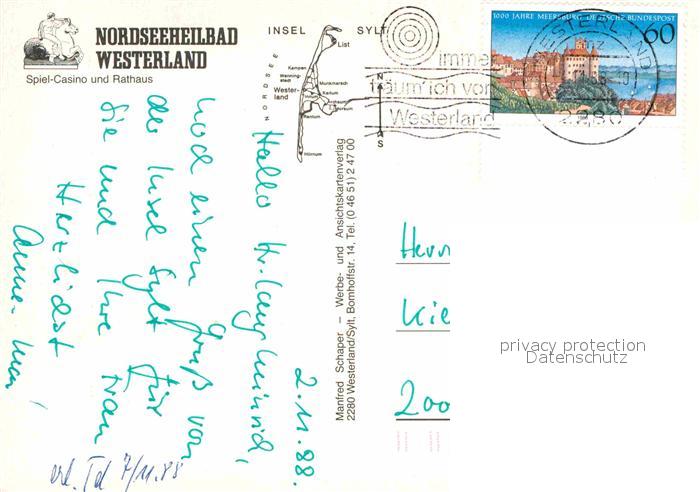 NORDSEEHEILBAD
WESTERLAND
Spiel-Casino und Rathaus
INSEL SYLT
NORDSEE
List
Kampen
Wenning-
stedt
Munkmarsch
Keitum
Wester-
land
Rantum
Hörnum
N
S
immer
träum' ich von
Westerland
WESTERLAND
2280
1000 JAHRE MEERSBURG DEUTSCHE BUNDESPOST
60
2.11.88.
Hallo Hr.
noch einen Gruß von
der Insel Sylt für
Sie und Ihre Frau
Herzlichst
Anne-
7/11.88
Manfred Schaper – Werbe- und Ansichtskartenverlag
2280 Westerland/Sylt, Bomhoffstr. 14, Tel. (0 46 51) 2 47 00
Herrn
Kie
200
privacy protection
Datenschutz